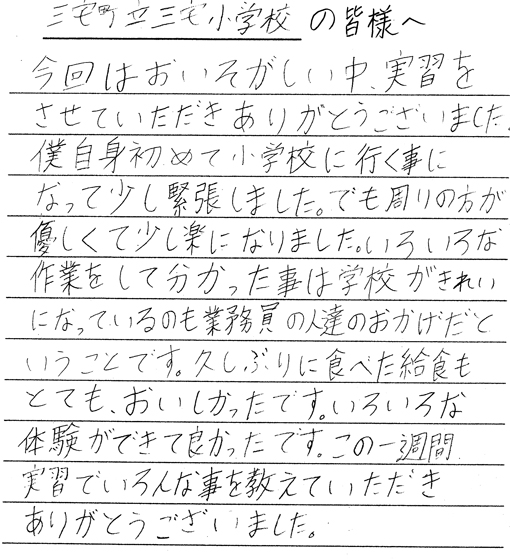 三宅町立三宅小学校の皆様へ
今回はおいそがしい中、実習を
させていただきありがとうございました。
僕自身初めて小学校に行く事に
なって少し緊張しました。でも周りの方が
優しくて少し楽になりました。いろいろな
作業をして分かった事は学校がきれい
になっているのも業務員の人達のおかげだと
いうことです。久しぶりに食べた給食も
とても、おいしかったです。いろいろな
体験ができて良かったです。この一週間
実習でいろんな事を教えていただき
ありがとうございました。